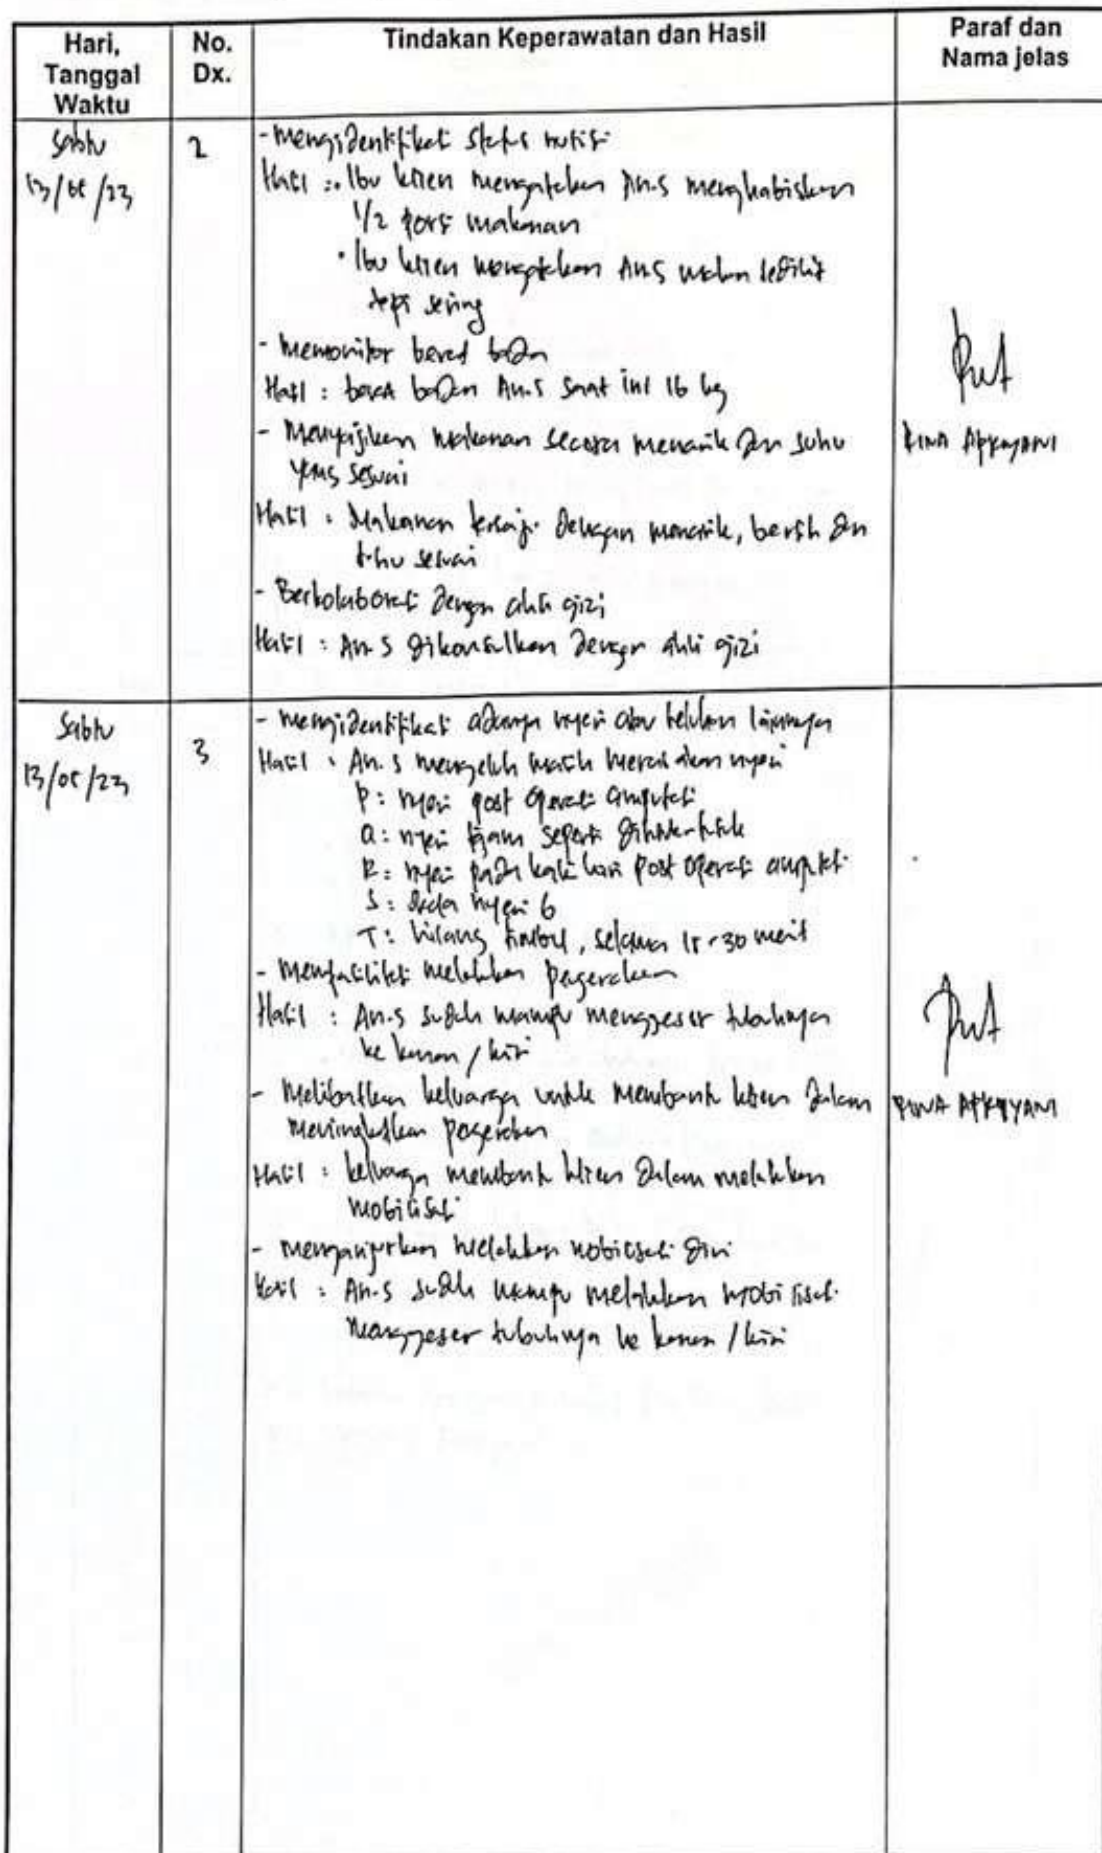 Hari,
Tanggal
Waktu
No.
Dx.
Tindakan Keperawatan dan Hasil
Paraf dan
Nama jelas
Sabtu
13/05/23
2
- mengidentifikasi status nutrisi
Hasil : • Ibu klien mengatakan An.S menghabiskan
1/2 porsi makanan
• Ibu klien mengatakan An.S makan sedikit
tapi sering
- memonitor berat badan
Hasil : berat badan An.S saat ini 16 kg
- Menyajikan makanan secara menarik dan suhu
yang sesuai
Hasil : Makanan tersaji dengan menarik, bersih dan
suhu sesuai
- Berkolaborasi dengan ahli gizi
Hasil : An.S dikonsulkan dengan ahli gizi
RINA APRIYANI
Sabtu
13/05/23
3
- mengidentifikasi adanya nyeri atau keluhan lainnya
Hasil : An.S mengeluh masih merasakan nyeri
P : nyeri post operasi amputasi
Q : nyeri tajam seperti ditusuk-tusuk
R : nyeri pada kaki kiri post operasi amputasi
S : skala nyeri 6
T : hilang timbul, selama 15-30 menit
- Memfasilitasi melakukan pergerakan
Hasil : An.S sudah mampu menggeser tubuhnya
ke kanan / kiri
- Melibatkan keluarga untuk membantu klien dalam
meningkatkan pergerakan
Hasil : keluarga membantu klien dalam melakukan
mobilisasi
- menganjurkan melakukan mobilisasi dini
Hasil : An.S sudah mampu melakukan mobilisasi
menggeser tubuhnya ke kanan / kiri
RINA APRIYANI